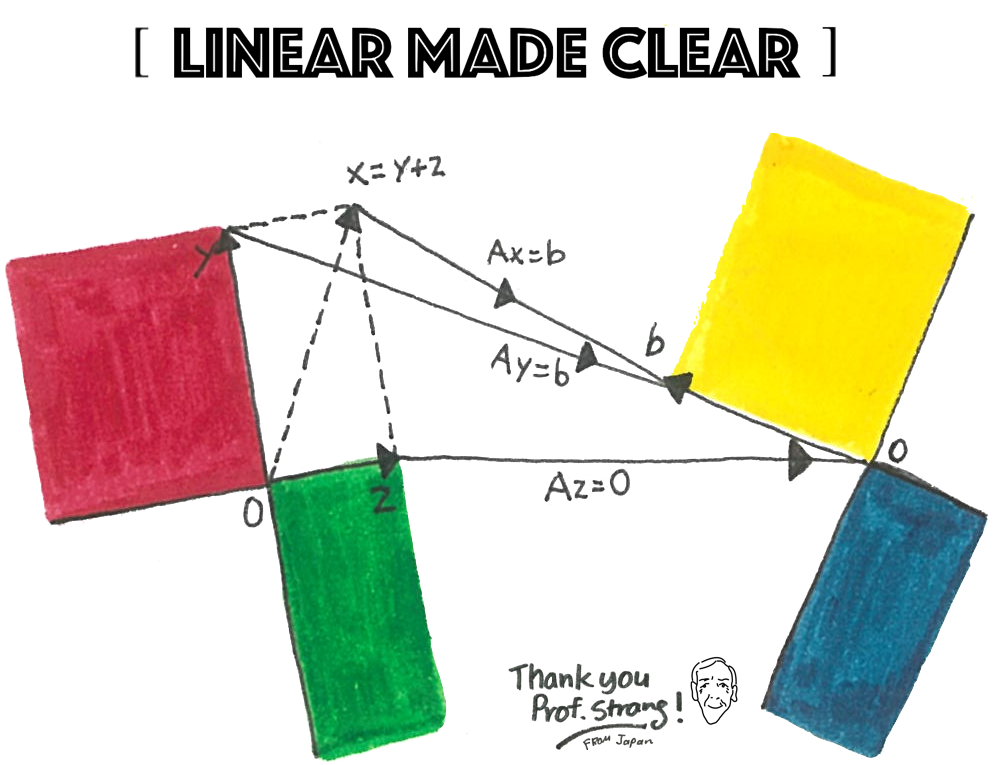 [ LINEAR MADE CLEAR ]
x=y+z
y
Ax=b
b
Ay=b
0
z
Az=0
0
Thank you
Prof. Strang!
FROM Japan